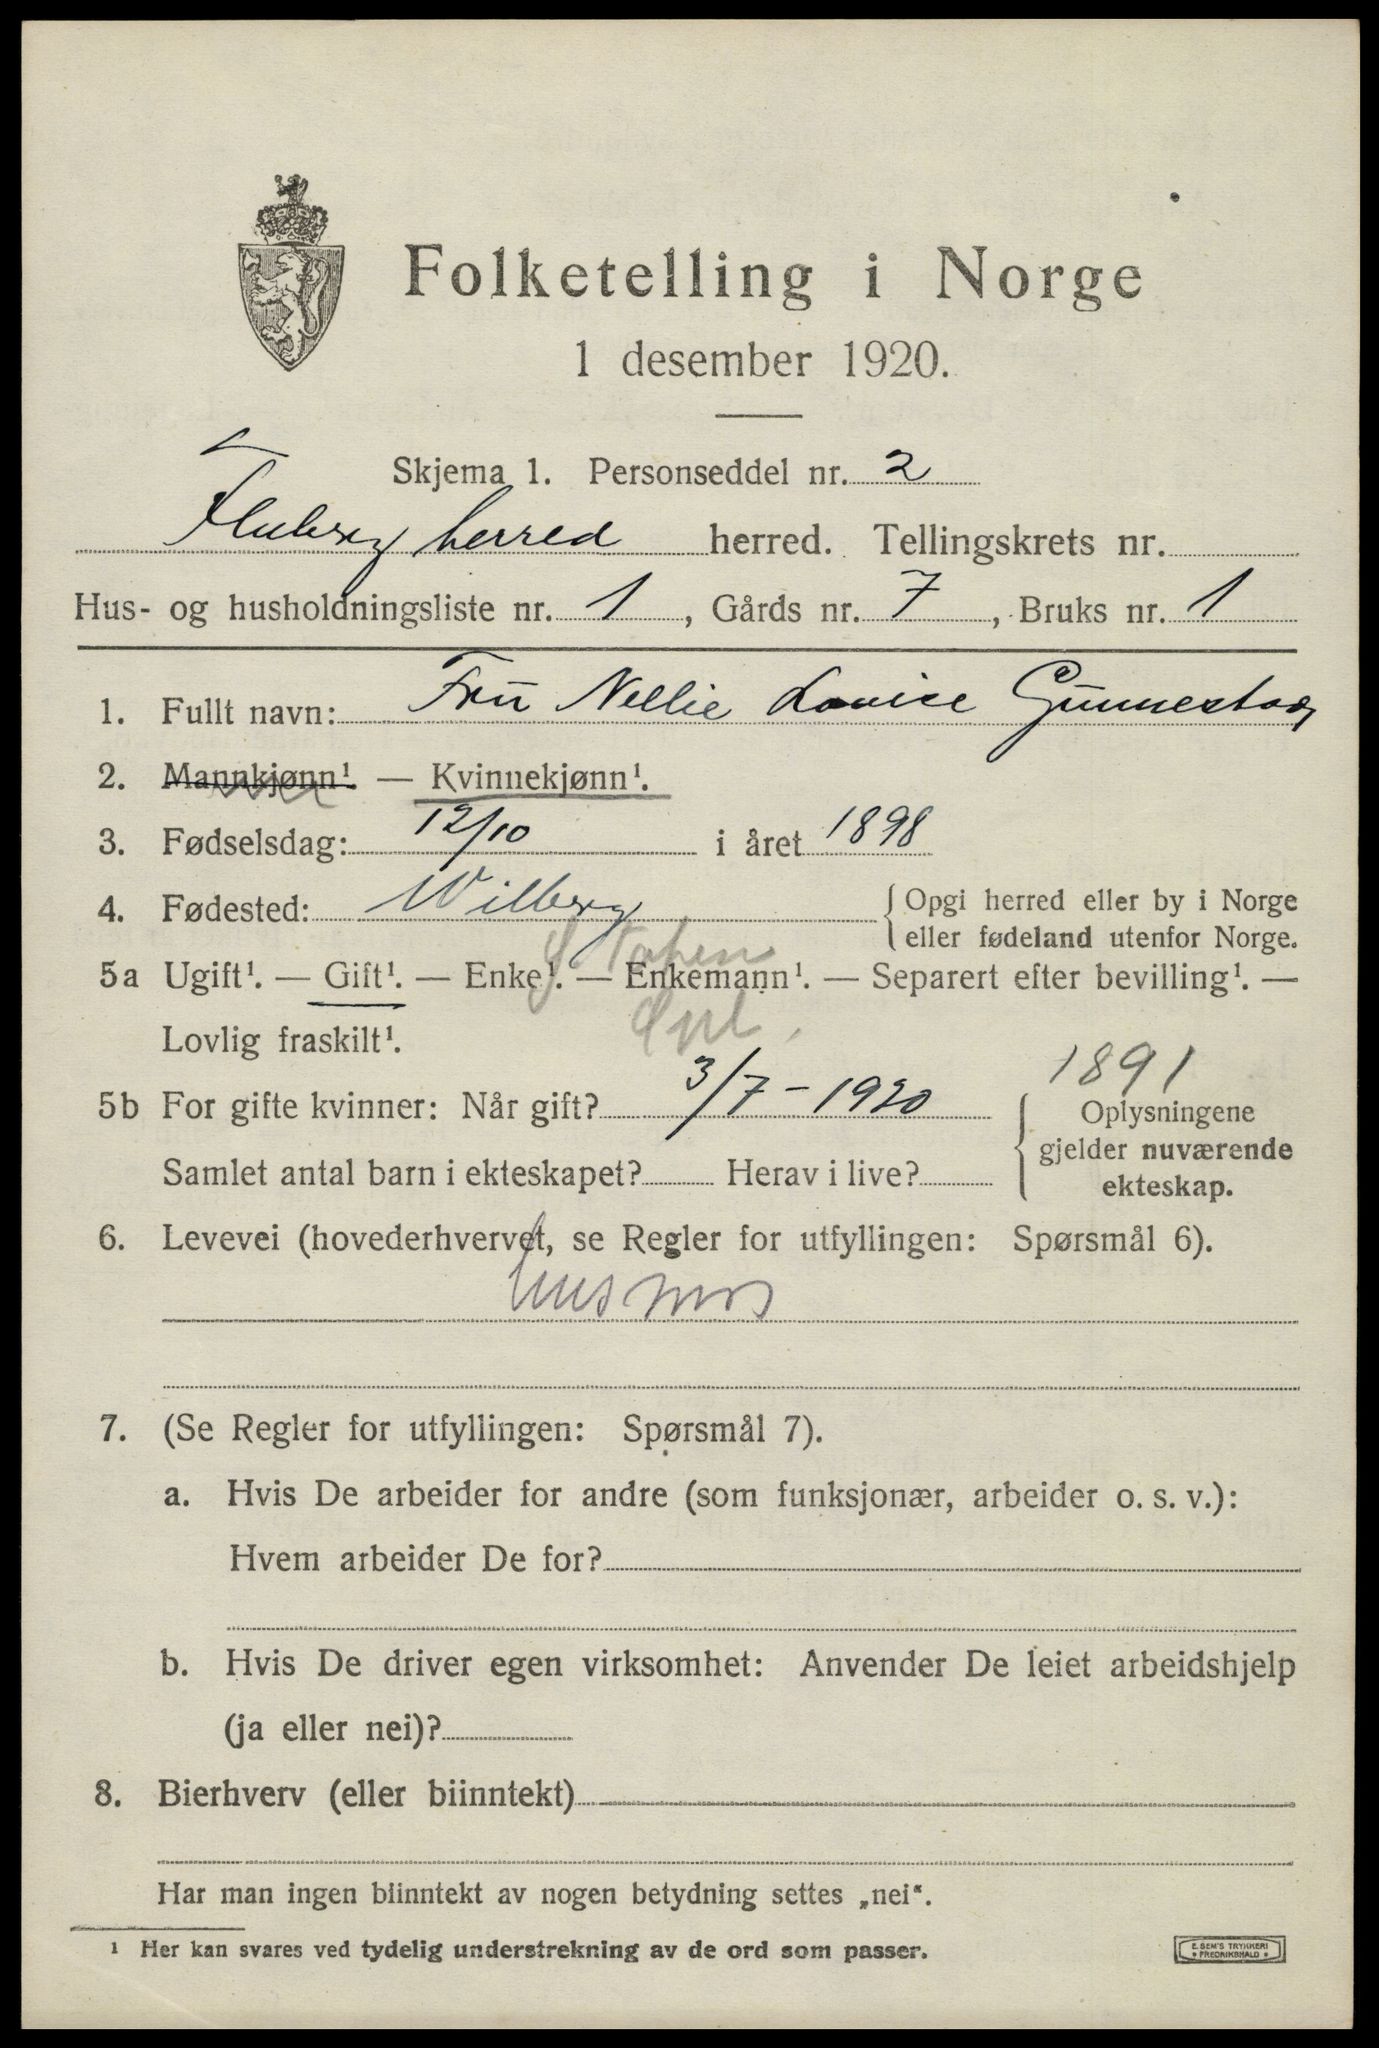 Folketelling i Norge
1 desember 1920.
Skjema 1. Personseddel nr. 2
Fluberg herred herred. Tellingskrets nr.
Hus- og husholdningsliste nr. 1, Gårds nr. 7, Bruks nr. 1
1. Fullt navn: Fru Nellie Louise Gunnestad
2. Mannkjønn¹. — Kvinnekjønn¹.
3. Fødselsdag: 12/10 i året 1898
4. Fødested: Wilberg
{ Opgi herred eller by i Norge
eller fødeland utenfor Norge.
5a Ugift¹. — Gift¹. — Enke¹. — Enkemann¹. — Separert efter bevilling¹. —
Lovlig fraskilt¹.
1891
5b For gifte kvinner: Når gift? 3/7 - 1920
Samlet antal barn i ekteskapet? Herav i live?
{ Oplysningene
gjelder nuværende
ekteskap.
6. Levevei (hovederhvervet, se Regler for utfyllingen: Spørsmål 6).
husmor
7. (Se Regler for utfyllingen: Spørsmål 7).
a. Hvis De arbeider for andre (som funksjonær, arbeider o. s. v.):
Hvem arbeider De for?
b. Hvis De driver egen virksomhet: Anvender De leiet arbeidshjelp
(ja eller nei)?
8. Bierhverv (eller biinntekt)
Har man ingen biinntekt av nogen betydning settes „nei“.
¹ Her kan svares ved tydelig understrekning av de ord som passer.
E. SEM'S TRYKKERI
• FREDRIKSHALD •